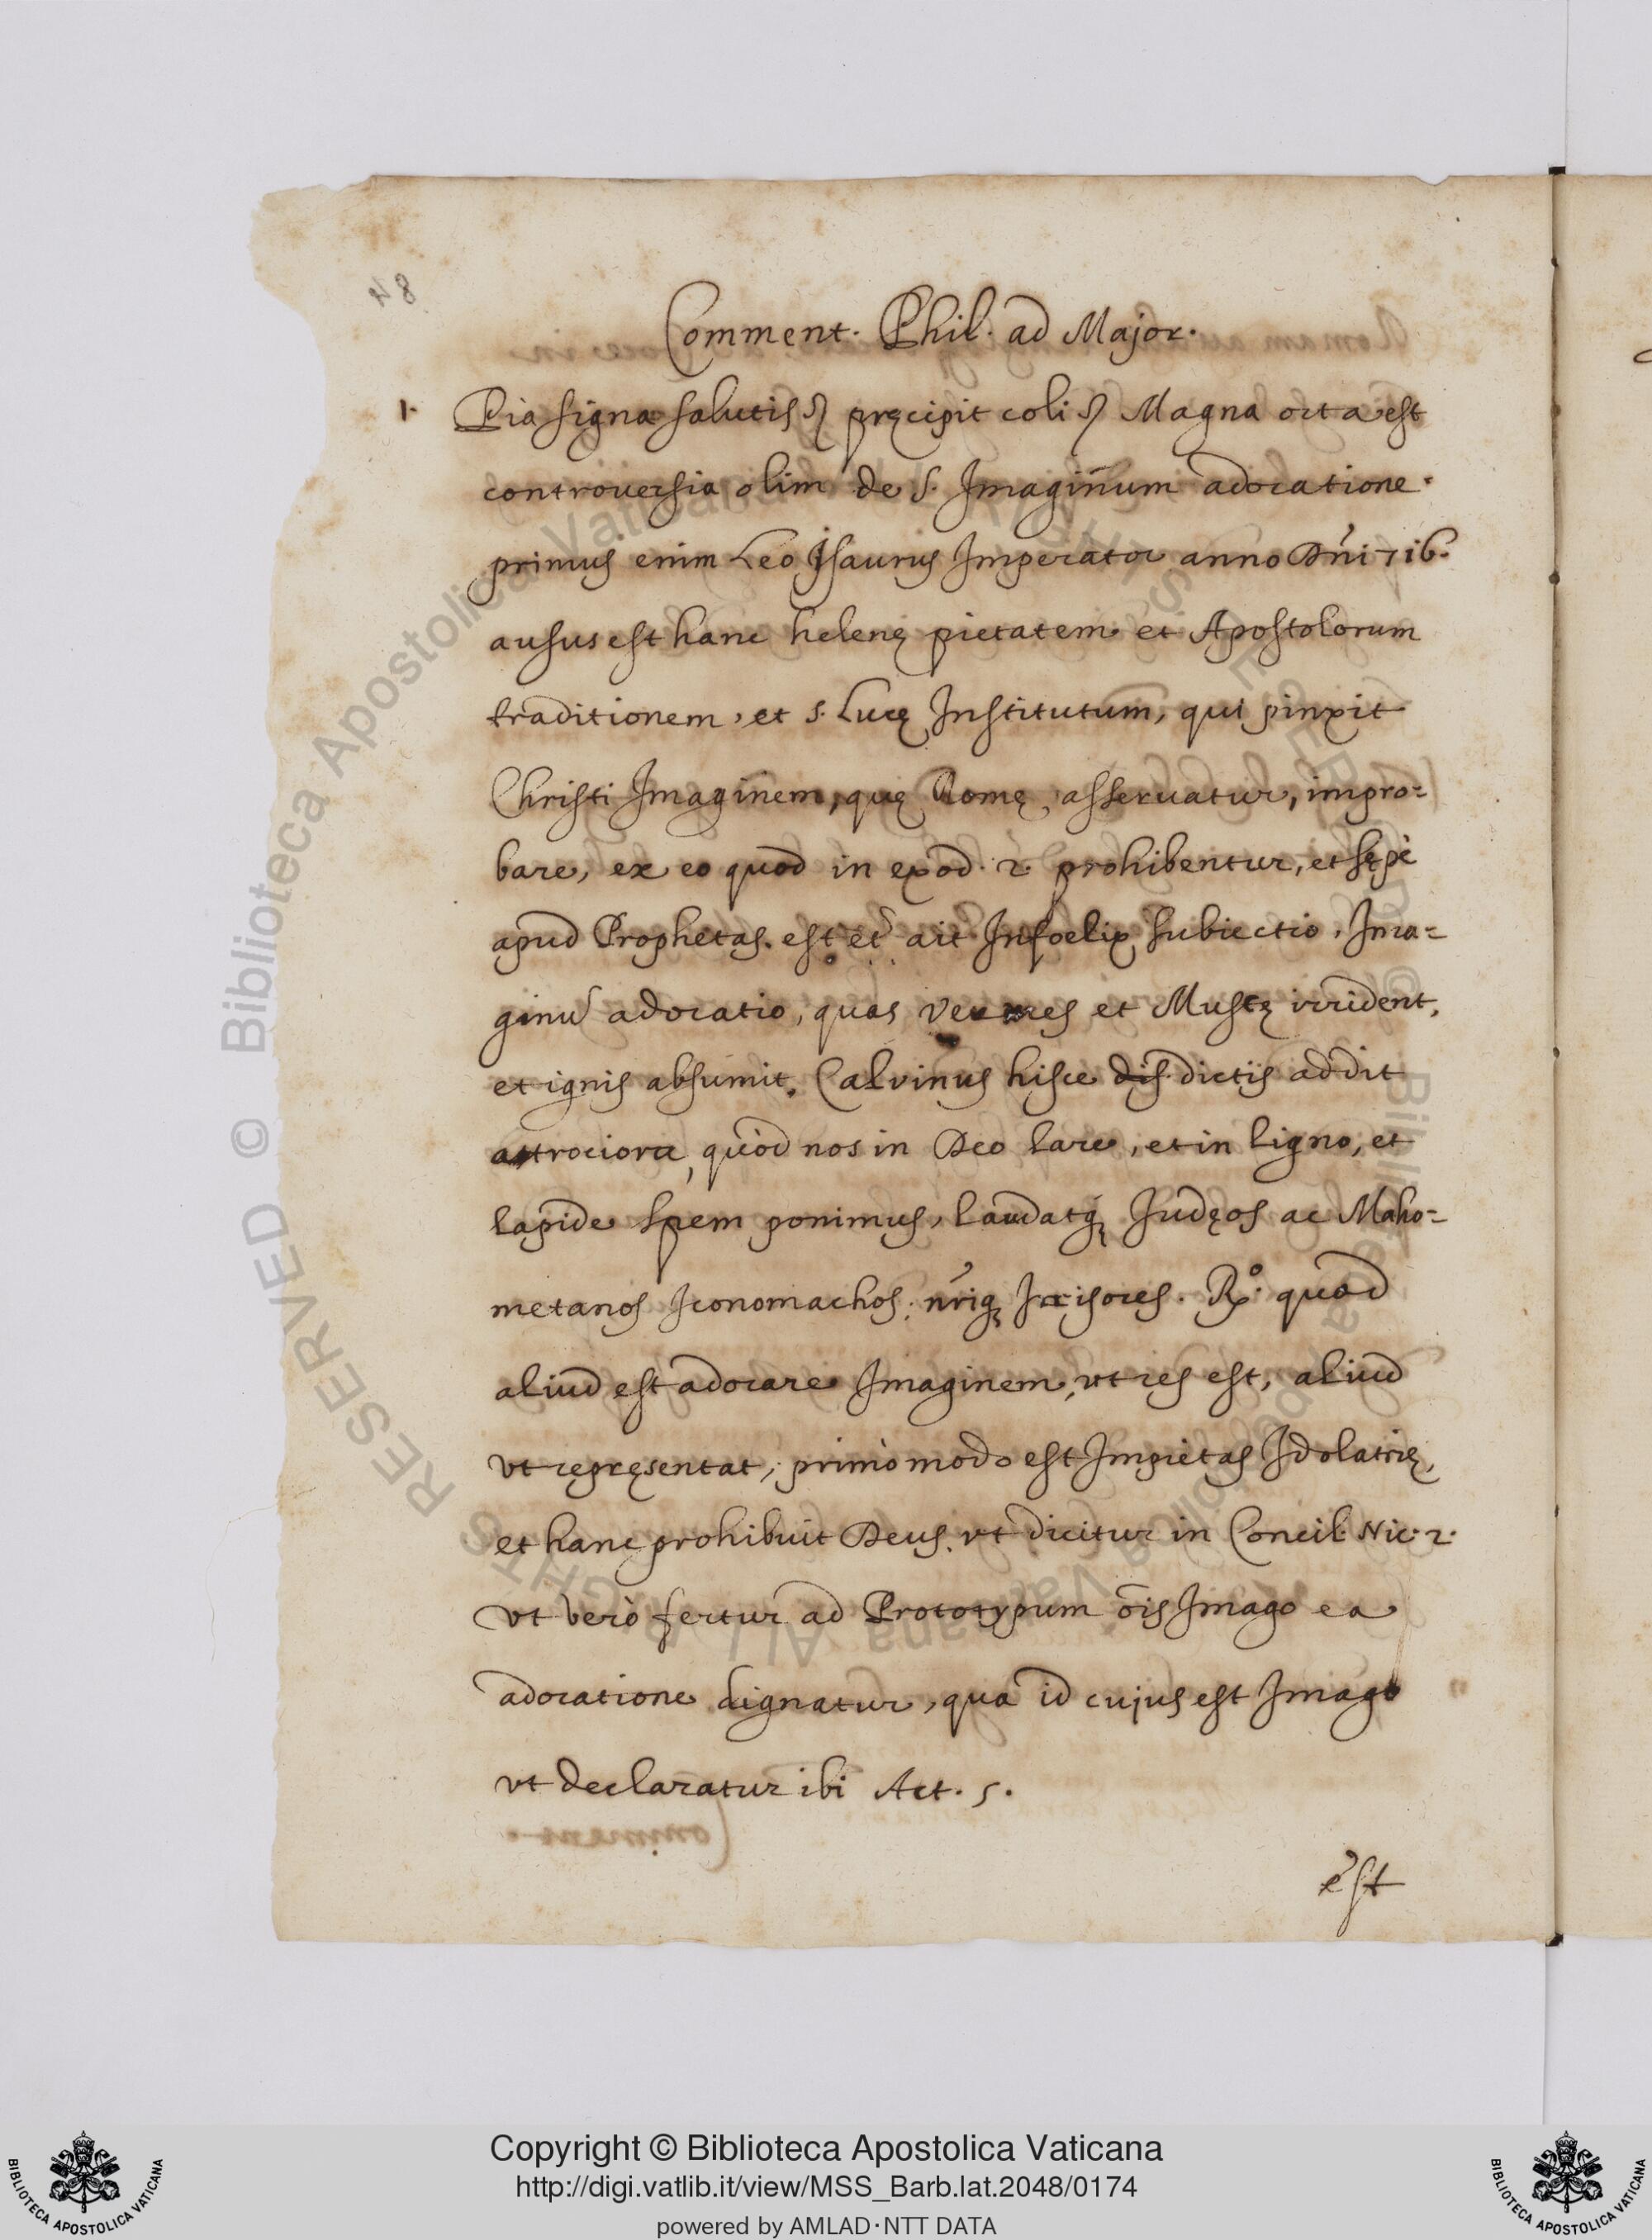 48
Comment. Phil. ad Major.
1. Pia signa salutis pręcipit coli Magna orta est
controuersia olim de S. Imaginum adoratione.
primus enim Leo Isaurus Imperator anno Dñi 716.
ausus est hanc helenę pietatem et Apostolorum
traditionem, et s. Lucę Institutum, qui pinxit
Christi Imaginem, quę Romę asseruatur, impro=
bare, ex eo quod in exod. 2. prohibentur, et sępè
apud Prophetas. est et ait Infoelix subiectio, Ima=
ginũ adoratio, quas Vermes et Mustę irrident,
et ignis absumit. Calvinus hisce dis. dictis addit
attrociora, quòd nos in Deo lare, et in ligno, et
lapide spem ponimus, laudatq; Judęos ac Maho=
metanos Iconomachos: nr̃iq; Irrisores. Rx.º quod
aliud est adorare Imaginem, ut res est, aliud
vt repręsentat; primò modo est Impietas Idolatrię,
et hanc prohibuit Deus, vt dicitur in Concil. Nic. 2.
vt verò fertur ad Prototypum õis Imago ea
adoratione dignatur, qua id cujus est Imago
vt declaratur ibi Act. 5.
est
© Biblioteca Apostolica Vaticana ALL RIGHTS RESERVED
Copyright © Biblioteca Apostolica Vaticana
http://digi.vatlib.it/view/MSS_Barb.lat.2048/0174
powered by AMLAD·NTT DATA
BIBLIOTECA APOSTOLICA VATICANA
BIBLIOTECA APOSTOLICA VATICANA